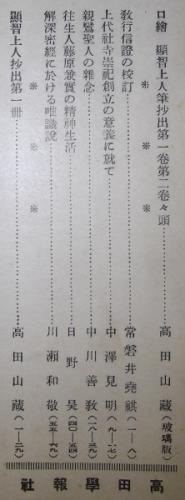 口繪　顯智上人筆抄出第一卷第二卷々頭…………高田山藏（玻璃版）
＊　＊　＊
敎行信證の校訂…………常磐井堯祺（一—八）
上代社寺崇祀創立の意義に就て…………中澤見明（九—一七）
親鸞聖人の雜念…………中川善敎（一八—三九）
往生人藤原兼實の精神生活…………日野昊（四〇—五四）
解深密經に於ける唯識說…………川瀨和敬（五五—六九）
＊　＊　＊
顯智上人抄出第一冊…………高田山藏（一—二九）
高田學報社